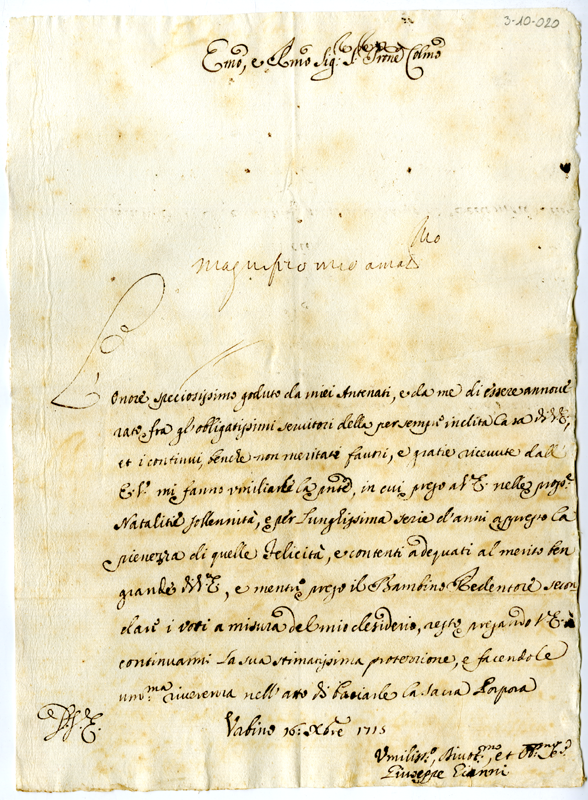 3-10-020
Emo, e Rmo Sig: Pron Colmo
Magnifico mio ama
L'Onore speciosissimo goduto da miei Antenati, e da me di essere annove
rato fra gl'obligatissimi servitori della per sempre inclita Casa di V. E.,
et i continui, benche non meritati favori, e gratie ricevute dall'
E. V. mi fanno umiliarle la pnte, in cui prego a V. E. nelle pross.e
Natalitie sollennità, e per lunghissima serie d'anni appresso la
pienezza di quelle felicità, e contenti adequati al merito ben
grande di V. E., e mentre prego il Bambino Redentore secon
dare i voti a misura del mio desiderio, resto pregando V. E. a
continuarmi la sua stimatissima protezzione, e facendole
um.ma riverenza nell'atto di baciarle la sacra Porpora
D. V. E.
Urbino 16: Xbre 1715
Umiliss.o, Divot.mo, et Obb.mo S.re
Giuseppe Gianni